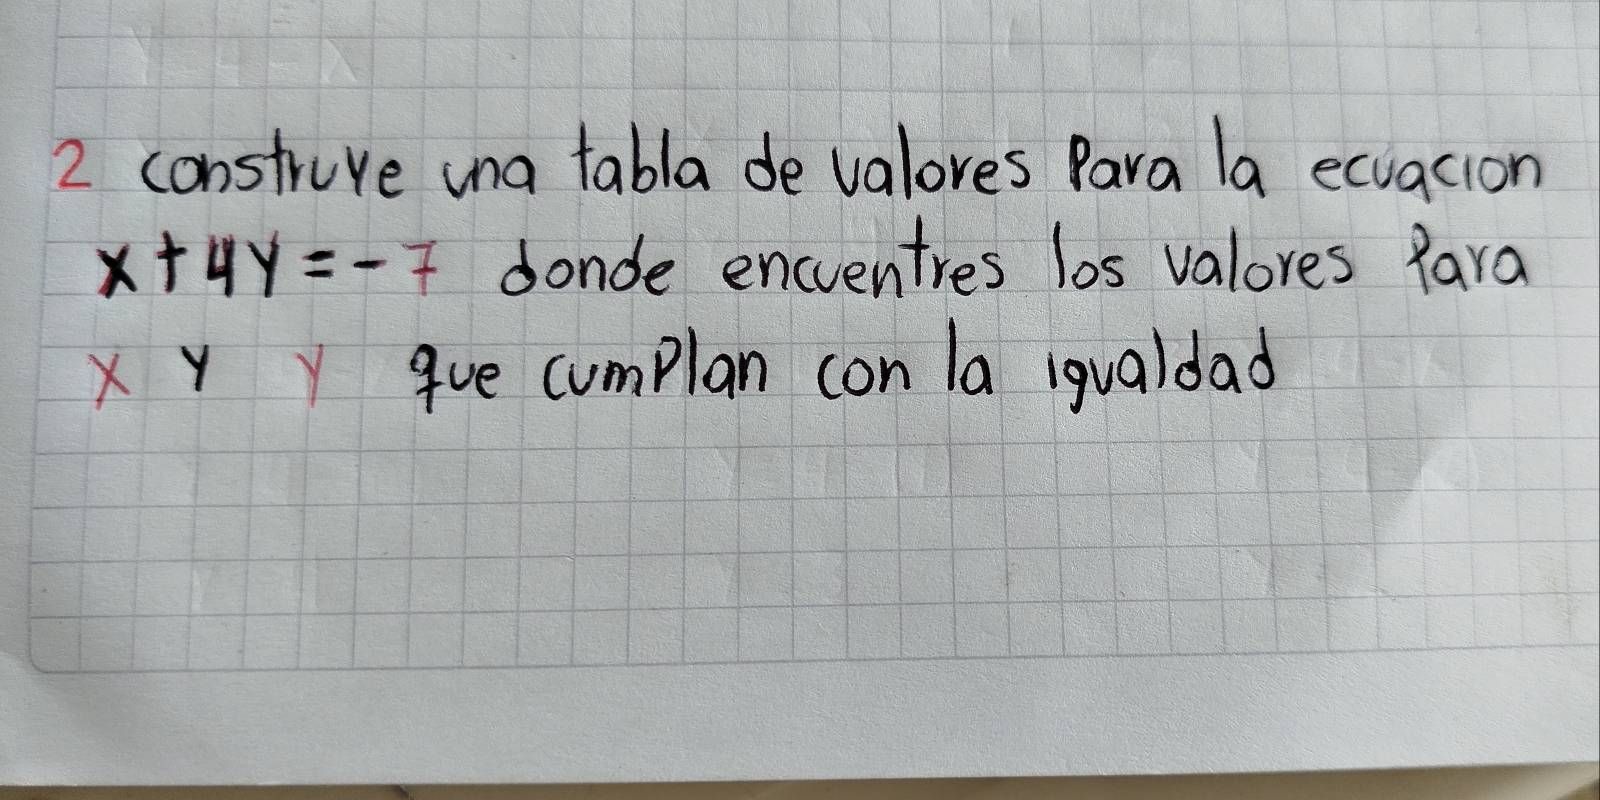 2 construye una tabla de valores Para la ecuacion
x + 4y = - 7 donde encuentres los valores Para
x y y que cumplan con la igualdad